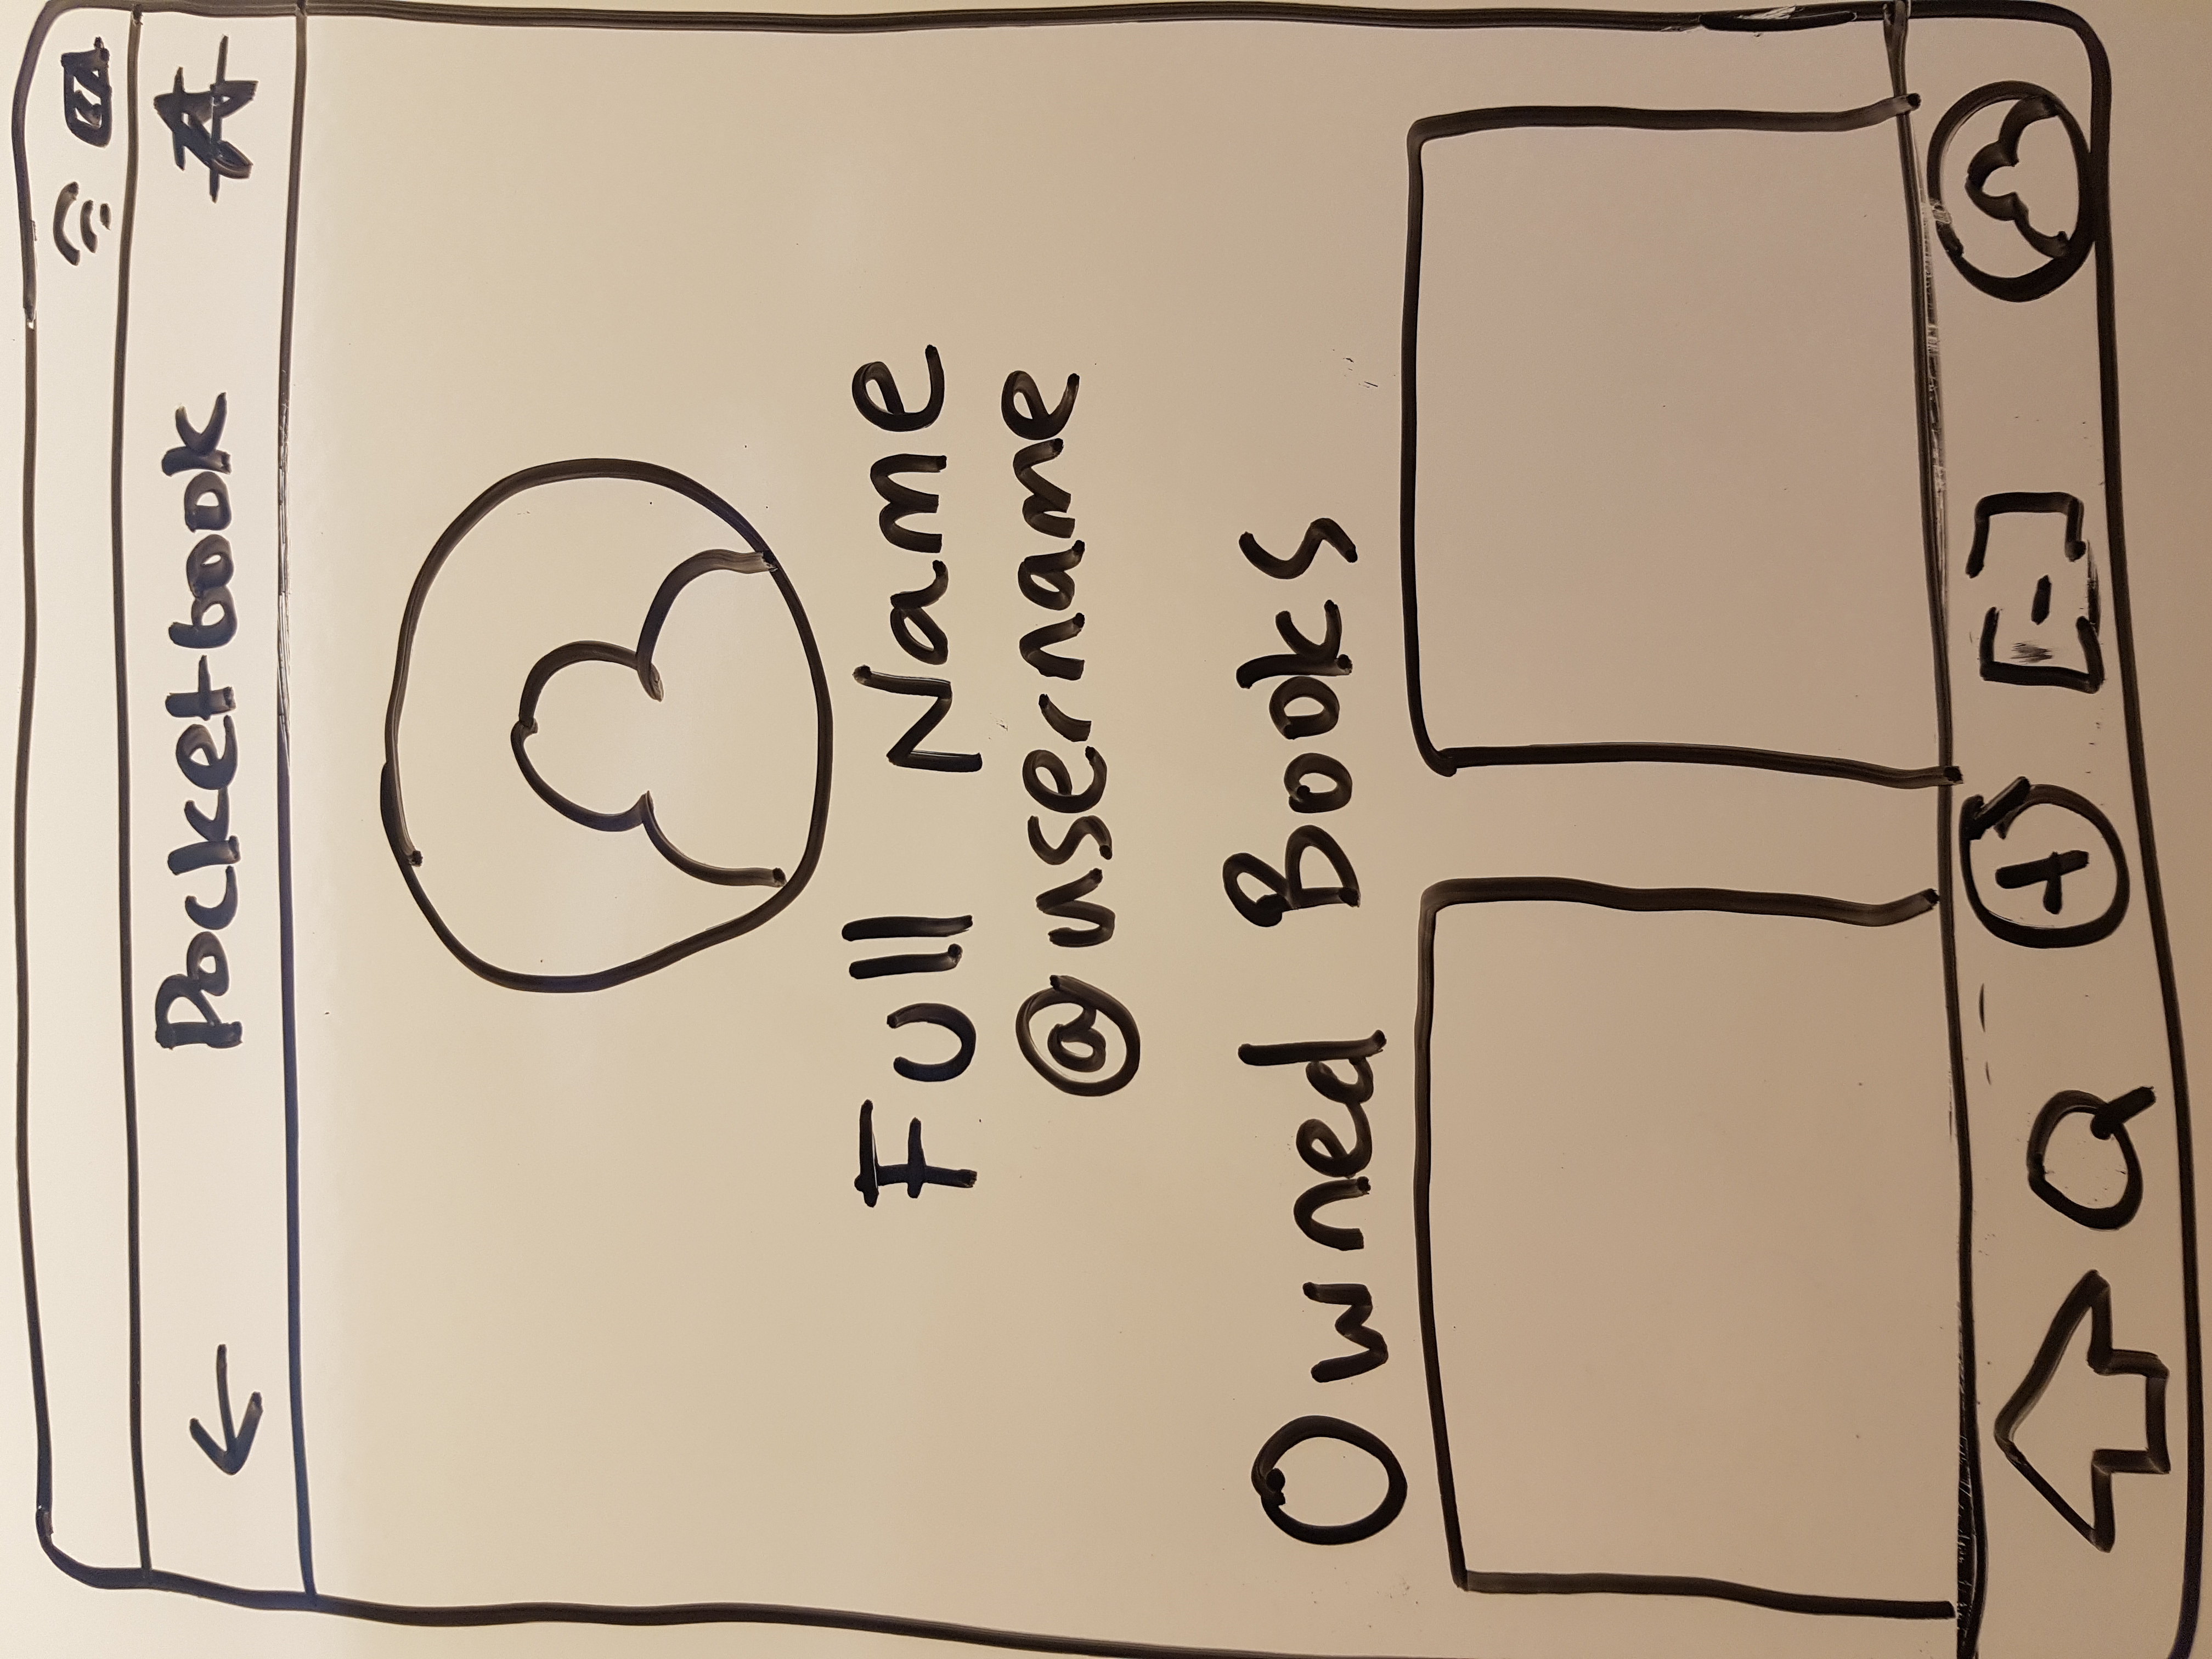 Pocketbook
Full Name
@username
Owned Books